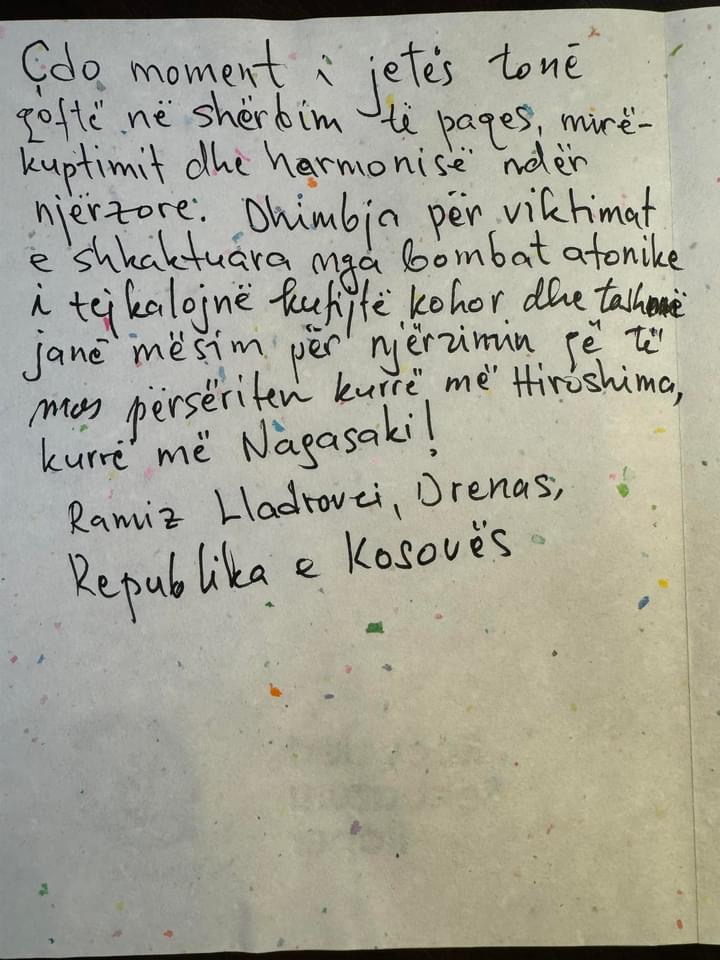 Çdo moment i jetës tonë
qoftë në shërbim të paqes, mirë-
kuptimit dhe harmonisë ndër
njërzore. Dhimbja për viktimat
e shkaktuara nga bombat atonike
i tejkalojnë kufijtë kohor dhe tashmë
janë mësim për njërzimin që të
mos përsëriten kurrë më Hiroshima,
kurrë më Nagasaki!
Ramiz Lladrovci, Drenas,
Republika e Kosovës